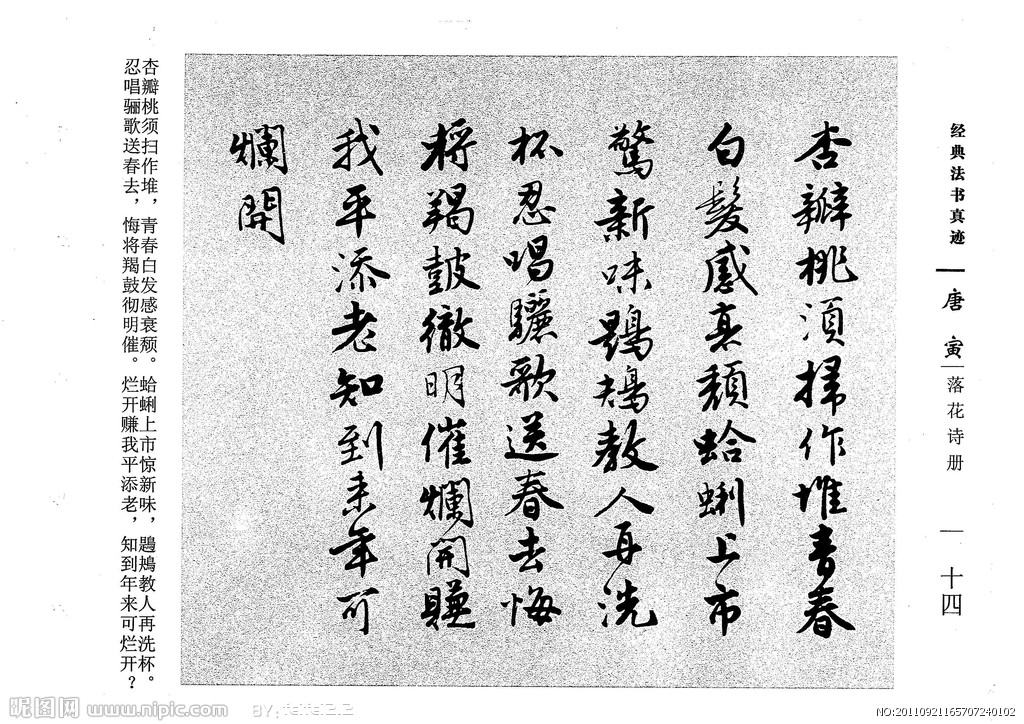 经典法书真迹
唐寅
落花诗册
十四
杏瓣桃須掃作堆青春
白髮感衰頹蛤蜊上市
驚新味鶗鴂教人再洗
杯忍唱驪歌送春去悔
將羯鼓徹明催爛開賺
我平添老知到来年可
爛開
杏瓣桃须扫作堆，青春白发感衰颓。蛤蜊上市惊新味，鶗鴂教人再洗杯。
忍唱骊歌送春去，悔将羯鼓彻明催。烂开赚我平添老，知到年来可烂开？
昵图网 www.nipic.com BY:
NO:20110921165707240102